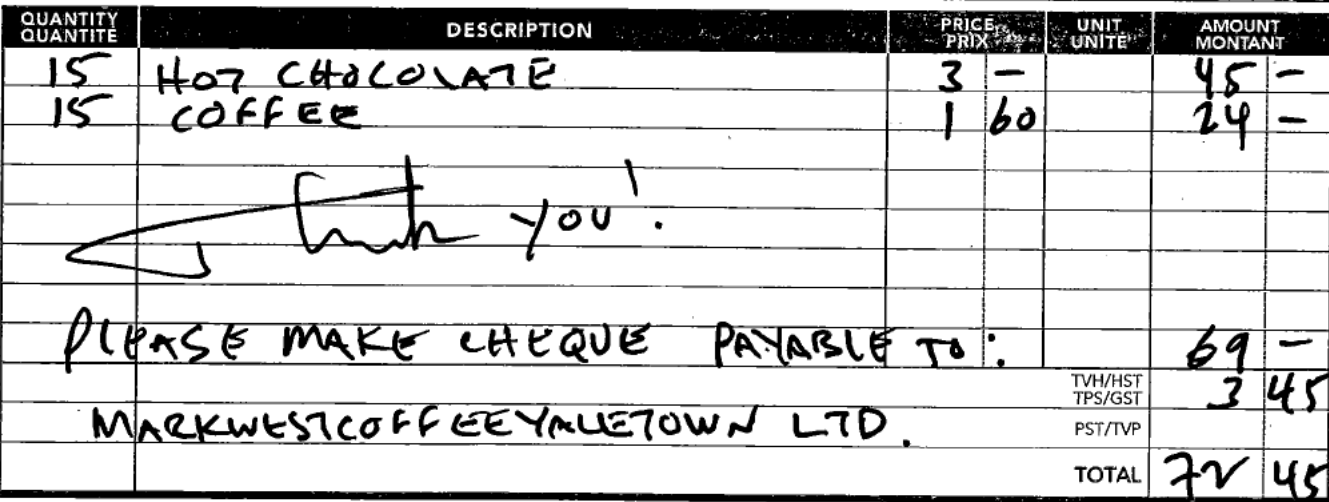 QUANTITY QUANTITÉ DESCRIPTION PRICE PRIX UNIT UNITÉ AMOUNT MONTANT
15 HOT CHOCOLATE 3 - 45 -
15 COFFEE 1 60 24 -
Thank YOU!
PLEASE MAKE CHEQUE PAYABLE TO: 69 -
TVH/HST TPS/GST 3 45
MARKWESTCOFFEEYALETOWN LTD. PST/TVP
TOTAL 72 45